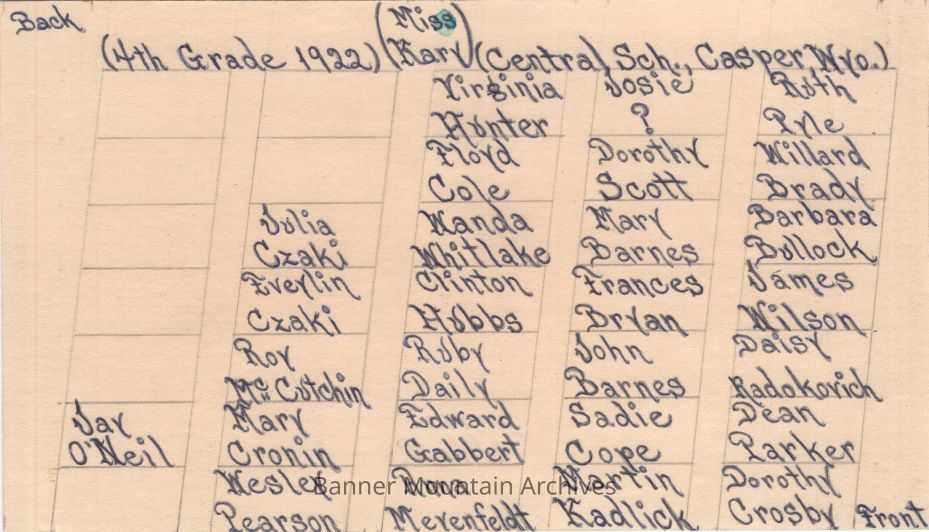 Back
Miss
(4th Grade 1922) (Kary) (Central Sch., Casper, Wyo.)
Virginia Josie Ruth
Hunter ? Pyle
Floyd Dorothy Willard
Cole Scott Brady
Julia Wanda Mary Barbara
Czaki Whitlake Barnes Bullock
Evelyn Clinton Frances James
Czaki Hubbs Bryan Wilson
Roy Ruby John Daisy
McCutchin Daily Barnes Radokovich
Jay Mary Edward Sadie Dean
O'Neil Cronin Gabbert Cope Parker
Wesley Martin Dorothy
Banner Mountain Archives
Pearson Meyenfeldt Kadlick Crosby Front